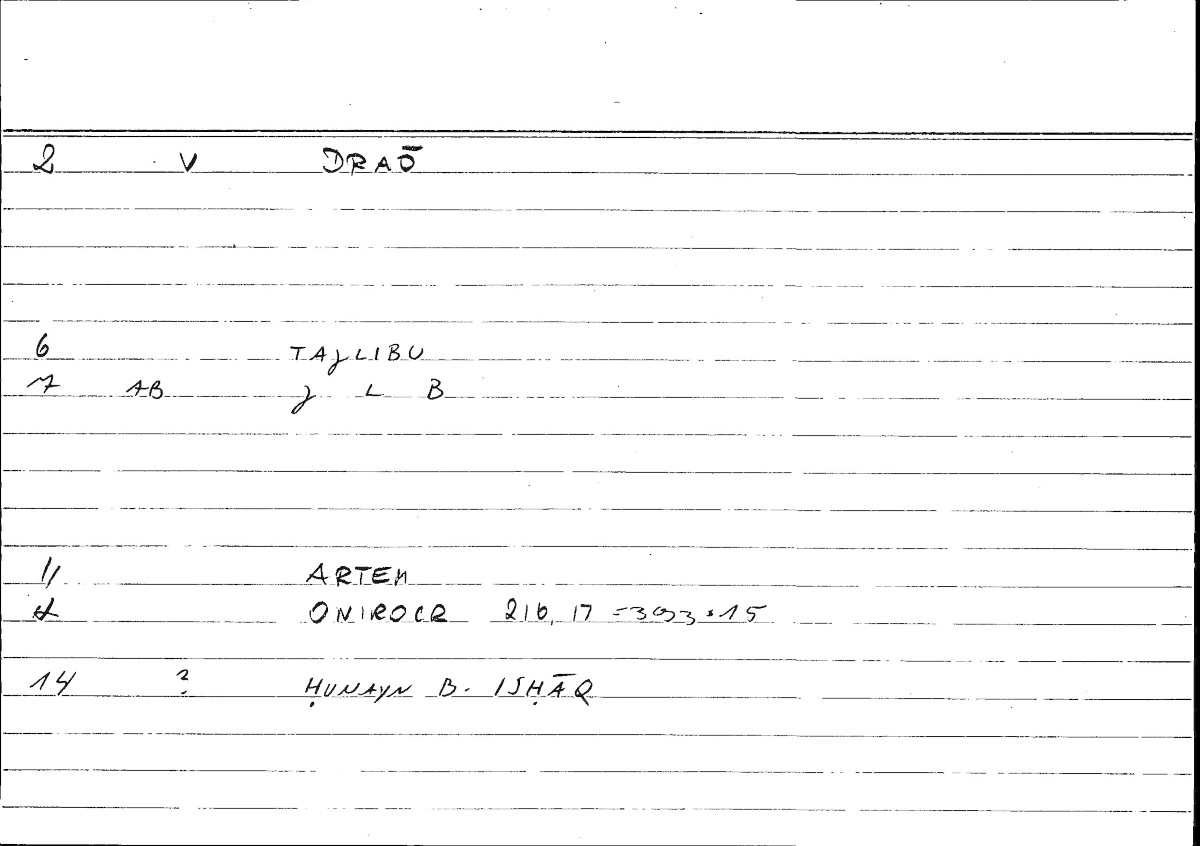 2 V DRAŌ
6 TAJLIBU
7 AB J L B
11 ARTEM
ONIROCR 216, 17 = 393.15
14 ? ḤUNAYN B. ISḤĀQ